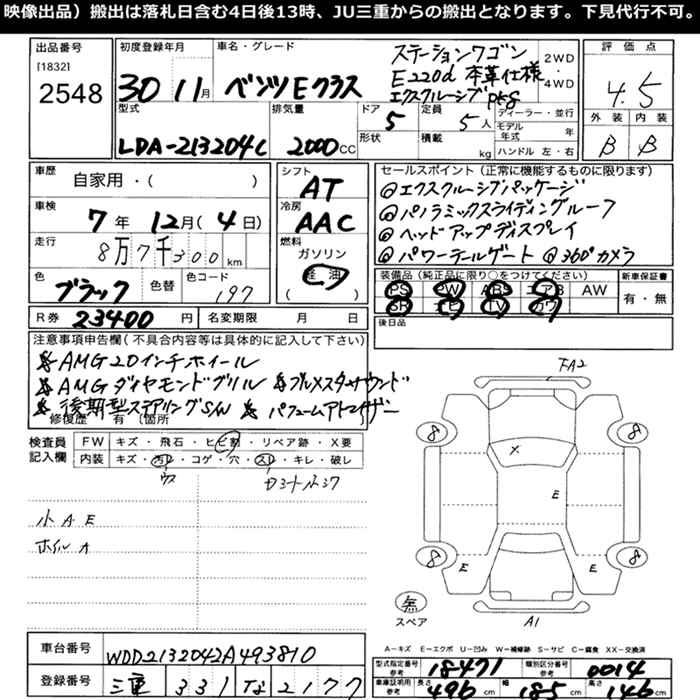 映像出品）搬出は落札日含む4日後13時、JU三重からの搬出となります。下見代行不可。
出品番号 初度登録年月 車名・グレード ステーションワゴン 2WD 評価点
[1832] 30 11月 ベンツEクラス E220d 本革仕様 ・4WD 4.5
2548 エクスクルーシブPkg
型式 排気量 ドア 定員 ディーラー・並行 外装 内装
LDA-213204C 2000CC 5 5人 モデル年式 年 B B
形状 積載 kg ハンドル 左・右
車歴 自家用・( ) シフト AT セールスポイント（正常に機能するものに限ります）
@エクスクルーシブパッケージ
車検 7年 12月(4日) 冷房 AAC @パノラミックスライディングルーフ
走行 8万7千300km 燃料 @ヘッドアップディスプレイ
ガソリン @パワーテールゲート @360°カメラ
色 ブラック 色替 色コード 197 軽油 ( )
装備品（純正品に限り○をつけてください） 新車保証書
PS PW ABS エアB AW 有・無
SR ナビ TV カワ
R券 23400円 名変期限 月 日 後日品
注意事項申告欄（不具合内容等は具体的に記入して下さい）
※AMG20インチホイール
※AMGダイヤモンドグリル ※ブルメスターサウンド
※後期型ステアリングSW ※パフュームアトマイザー
修復歴 有 (箇所
FA2
検査員記入欄 FW キズ・飛石・ヒビ割・リペア跡・X要
内装 キズ・汚レ・コゲ・穴・スレ・キレ・破レ
ウス
小AE
ホイルA
8 8
X
E
8 8
E E
無
スペア A1
車台番号 WDD2132042A493810
登録番号 三重 331 な 2177
A－キズ E－エクボ U－凹み W－補修跡 S－サビ C－腐食 XX－交換済
型式指定番号 参考 18471 類別区分番号 参考 0014
車庫証明用 参考 長さ 496cm 幅 185cm 高さ 146cm